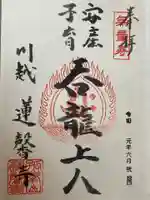 奉拝
安産
子育
呑龍上人
川越
蓮馨寺
元年六月